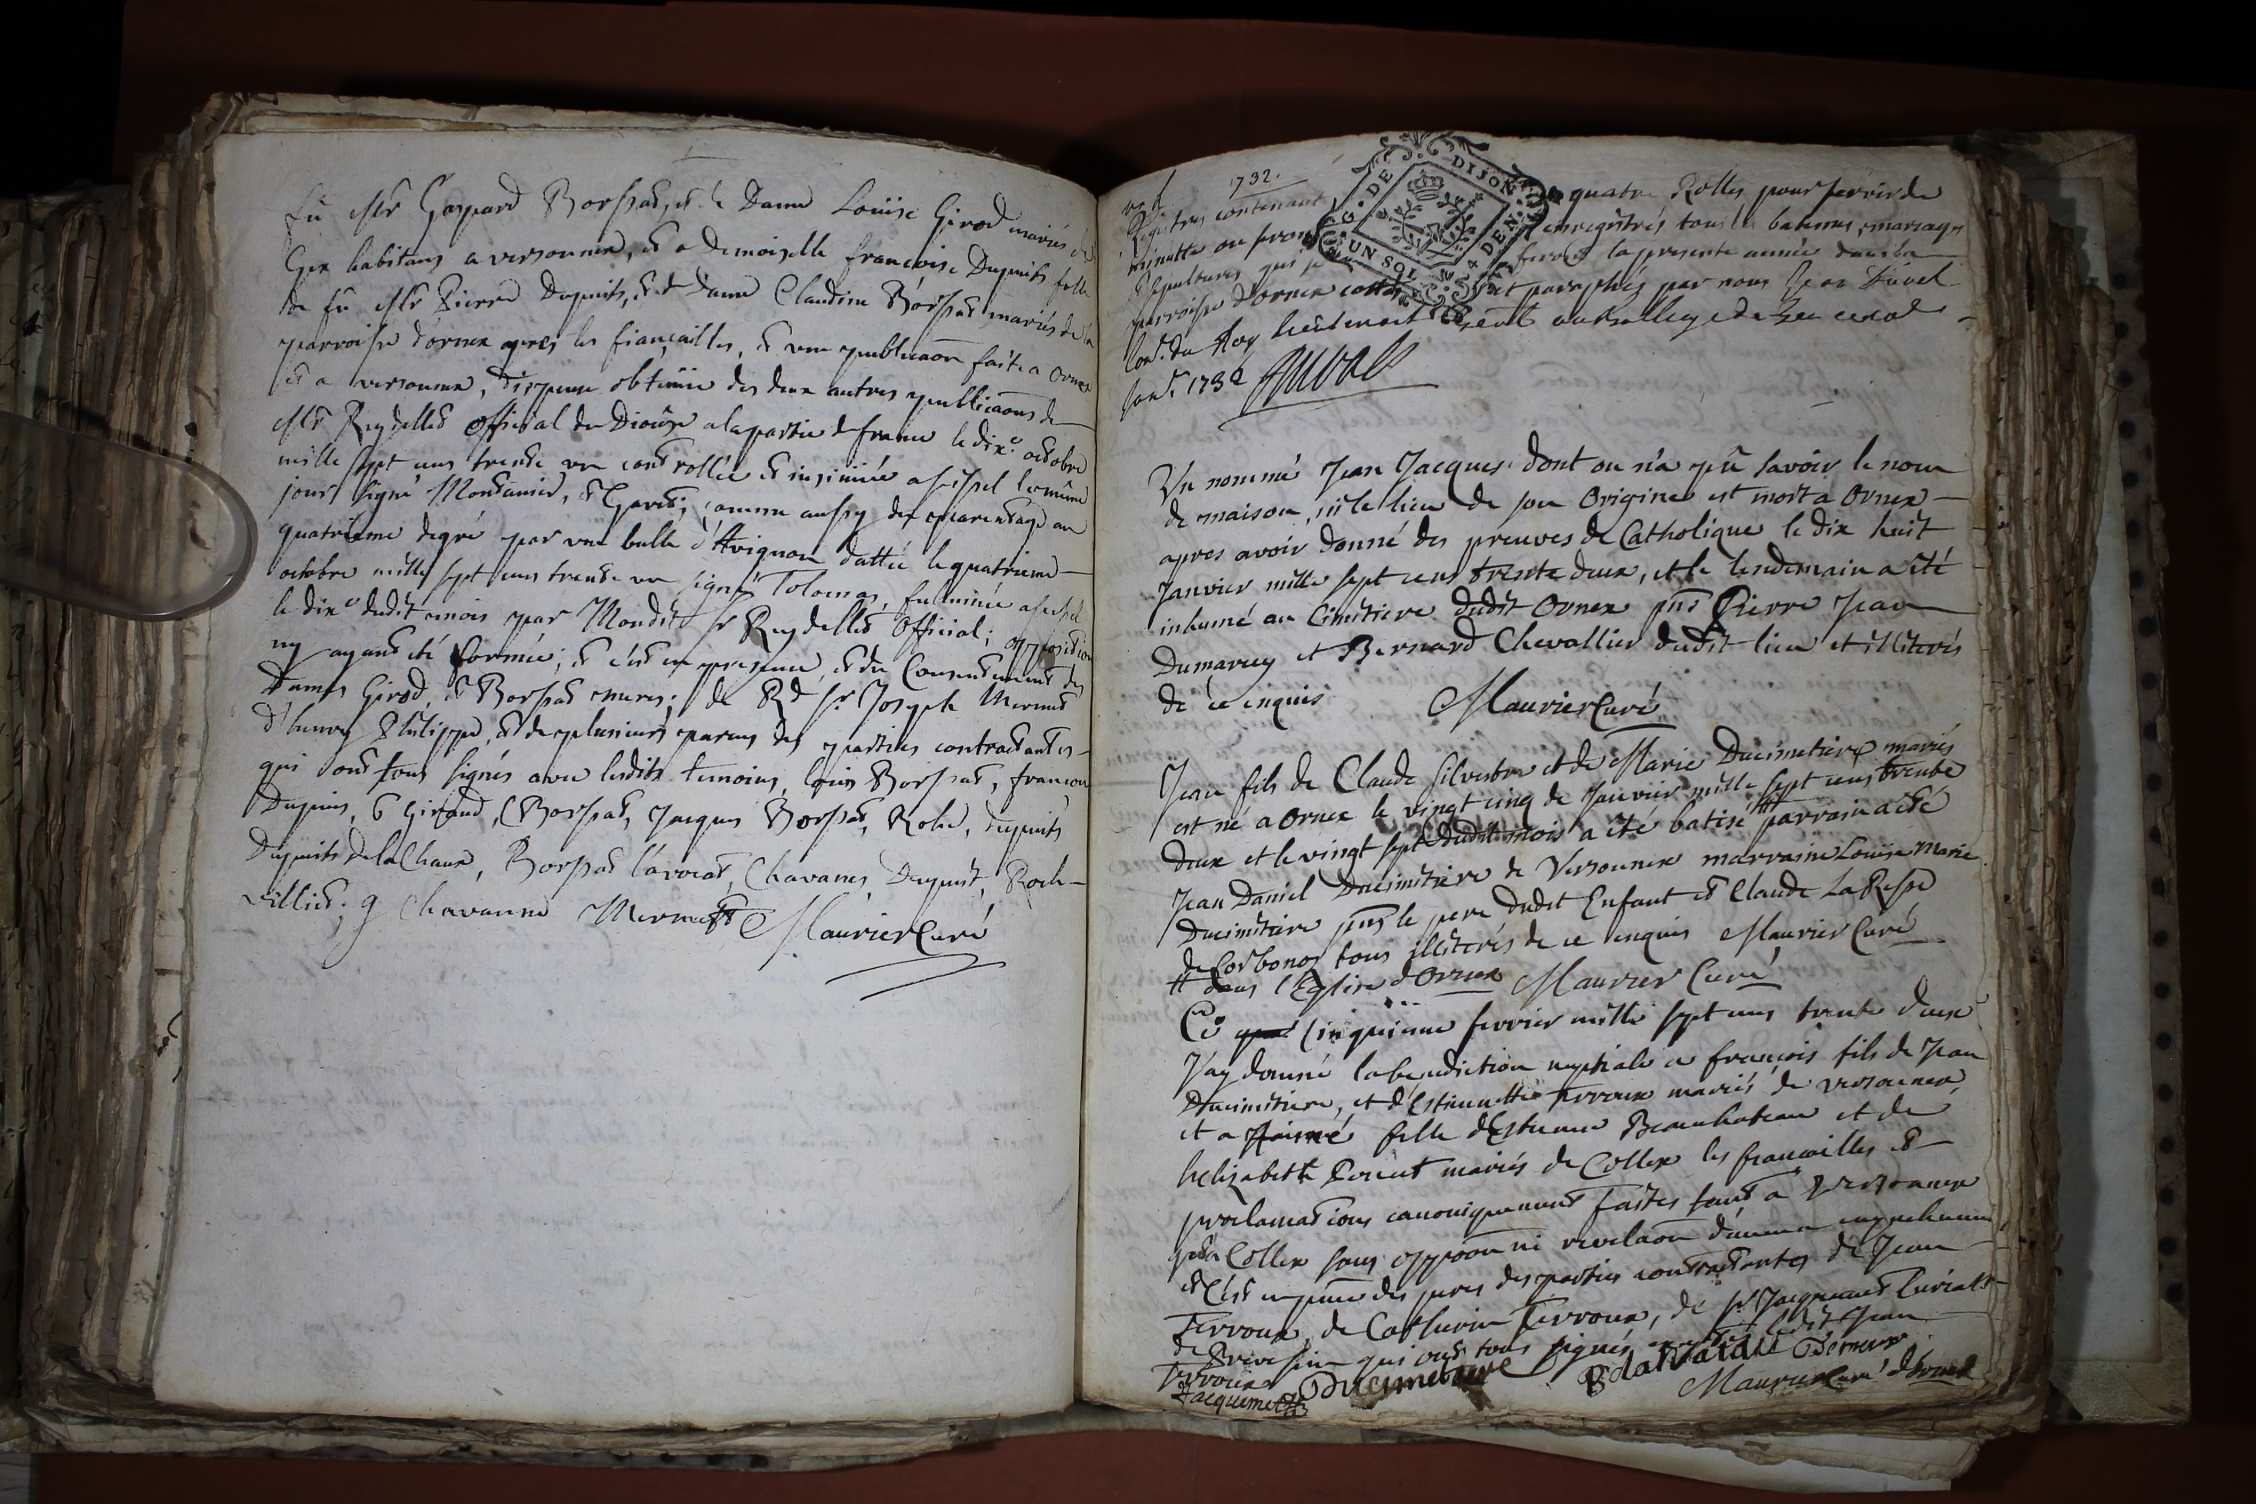 fû Mr Gaspard Borssat, et de Dame Loüise Girod mariés de
Gex habitans a versonnex, et a Demoiselle francoise Dupuits fille
de fû Mr Pierre Dupuits, et de Dame Claudine Borssat mariés de la
parroisse d'ornex apres les fiançailles, et une publicaon faite a ornex
et a versonnex, dispense obtenüe des deux autres publicaons de
Mr Reydellet official du Diocese a la partie de france le dix.e octobre
mille sept cens trente un controllée et insinuée a seissel le même
jour signé Montanier, et Garet; comme aussy de parentage au
quatrième degré par une bulle d'Avignon dattée le quatrieme
octobre mille sept cens trente un signé Tolomas, fulminée a seissel
le dix.e dudit mois par Mondit Sr Reydellet official; opposition
ny ayant été formée; et c'est en presence, et du Consentement des
Dames Girod, et Borssat meres; de Rd Sr Joseph Mermet
d'humy Philippe, et de plusieurs parens des parties contractantes
qui ont tous signés avec lesdits temoins, loüis Borssat, francois
Dupuis, G Giraud, Borssat, Jacques Borssat, Roland, dupuits
Dupuits de la Chaux, Borssat l'avocat, Chavanes, Dupuit, Roch
villiet; g Chavanne Mermet Maurier Curé
1732.
Registres contenant quatre Rolles pour servir de
minutte ou seront enregistrés tous les batemes, mariages
et sepultures qui se feront la presente année dans la
parroisse d'ornex cottés et paraphés par nous Jean Duval
Con.r du Roy lieutenant Genl au Balliage de Gex ce
Janv.r 1732 Duval
G. DE DIJON
G. DE
UN SOL
Un nommé Jean Jacques dont on n'a pû savoir le nom
de maison, ni le lieu de son Origine est mort a Ornex
apres avoir donné des preuves de Catholique le dix huit
Janvier mille sept cens trente deux, et le lendemain a été
inhumé au Cimitiere dudit Ornex pnts Pierre Jean
Dumarcey et Bernard Chevallier dudit lieu et illiterés
de ce enquis Maurier Curé
Jean fils de Claude Silvestre et de Marie Ducimetiere mariés
est né a Ornex le vingt cinq de Janvier mille sept cens trente
deux et le vingt sept dudit mois a été batisé ++ parrain a été
Jean Daniel Ducimitiere de Versonnex marraine Louise Marie
Ducimitiere pnts le pere dudit Enfant et Claude La Rippe
de Corbonod tous illiterés de ce enquis Maurier Curé
++ dans l'Eglise d'Ornex Maurier Curé
Ce Cinquieme fevrier mille sept cens trente deux
J'ay donné la benediction nuptiale a françois fils de Jean
Ducimitiere, et d'Estiennette Terroux mariés de versonnex,
et a Aimé fille d'Estienne Beauchateau et de
helizabeth mariés de Collex les fiancailles et
proclamations canoniquement faites tant a Versonnex
qu'a Collex sans opposon ni revelaon d'aucun empechement
et c'est en pnce des peres des parties contractantes de Jean
Terroux, de Catherin Terroux, de Sr Jacquemet Curial
de qui ont tous signés ledit Jean
Terroux
Jacquemet Ducimetiere
Maurier Curé d'Ornex